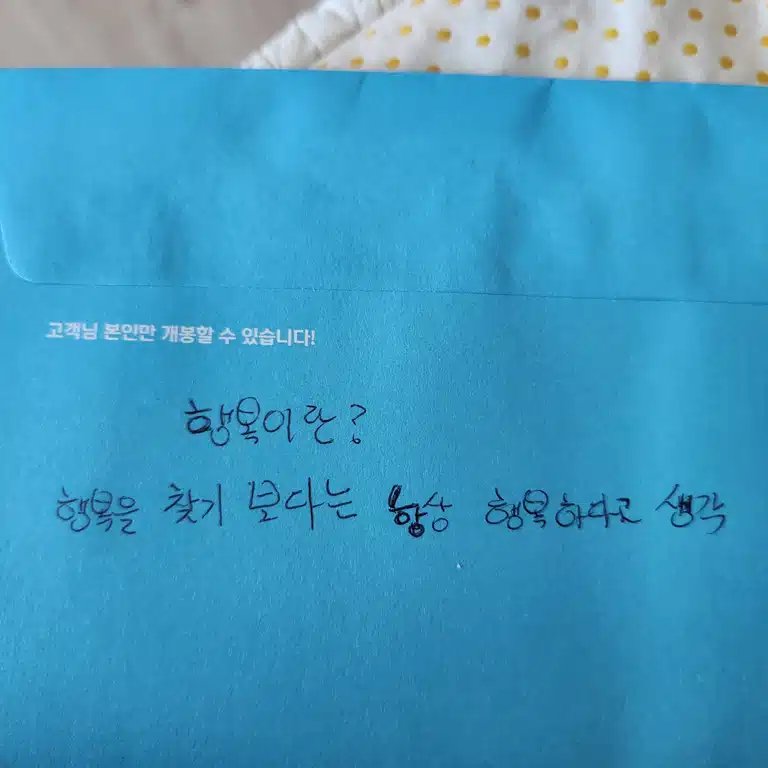 고객님 본인만 개봉할 수 있습니다!
행복이란?
행복을 찾기 보다는 항상 행복하다고 생각